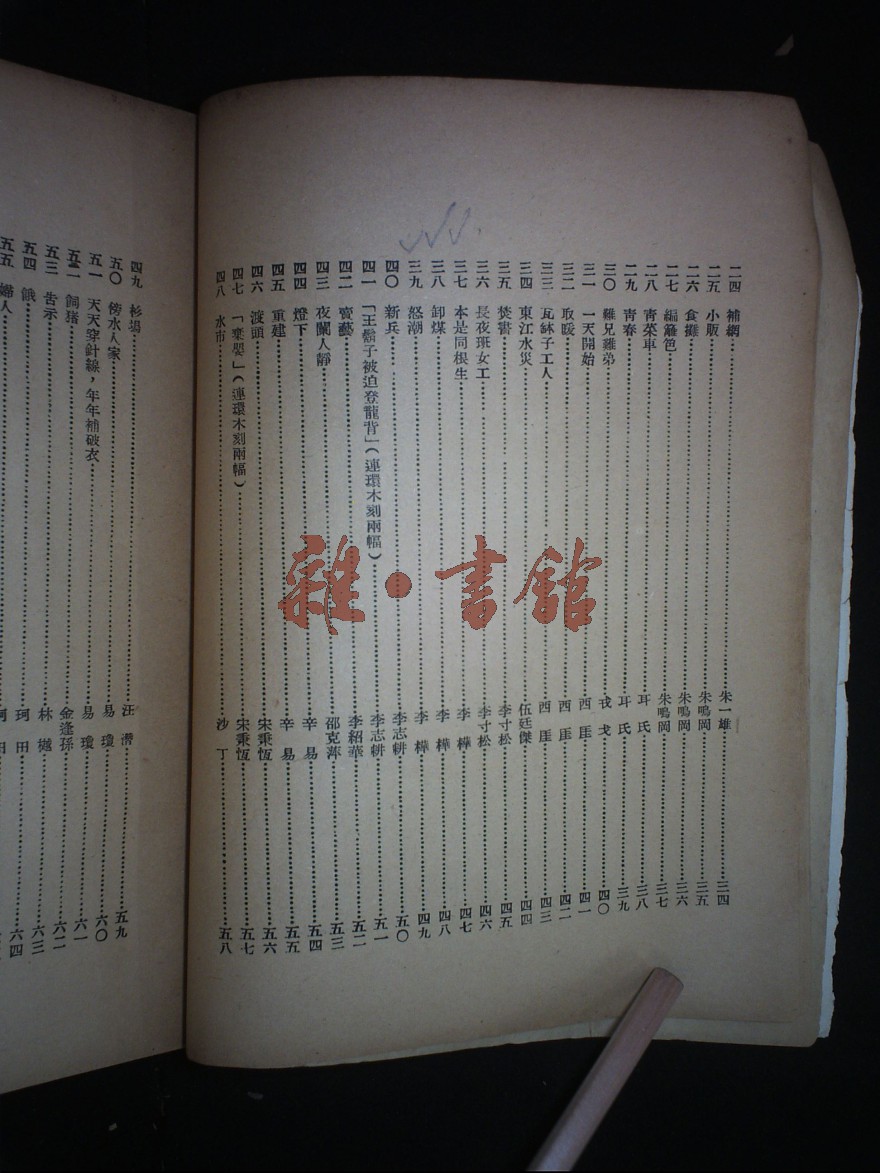 二四 補網 朱一雄 三四
二五 小販 朱鳴岡 三五
二六 食攤 朱鳴岡 三六
二七 編籬笆 朱鳴岡 三七
二八 靑菜車 耳氏 三八
二九 靑春 耳氏 三九
三〇 難兄難弟 戎戈 四〇
三一 一天開始 西厓 四一
三二 取暖 西厓 四二
三三 瓦缽子工人 西厓 四三
三四 東江水災 伍廷傑 四四
三五 焚書 李寸松 四五
三六 長夜班女工 李寸松 四六
三七 本是同根生 李樺 四七
三八 卸煤 李樺 四八
三九 怒潮 李樺 四九
四〇 新兵 李志耕 五〇
四一 「王鬍子被迫登龍背」(連環木刻兩幅) 李志耕 五一
四二 賣藝 李紹華 五二
四三 夜闌人靜 邵克萍 五三
四四 燈下 辛易 五四
四五 重建 辛易 五五
四六 渡頭 宋秉恆 五六
四七 「棄嬰」(連環木刻兩幅) 宋秉恆 五七
四八 水市 沙丁 五八
四九 杉場 汪澇 五九
五〇 傍水人家 易瓊 六〇
五一 天天穿針線,年年補破衣 易瓊 六一
五二 飼豬 金逢孫 六二
五三 吿示 林樾 六三
五四 餓 珂田 六四
五五 婦人 珂田
雜·書館